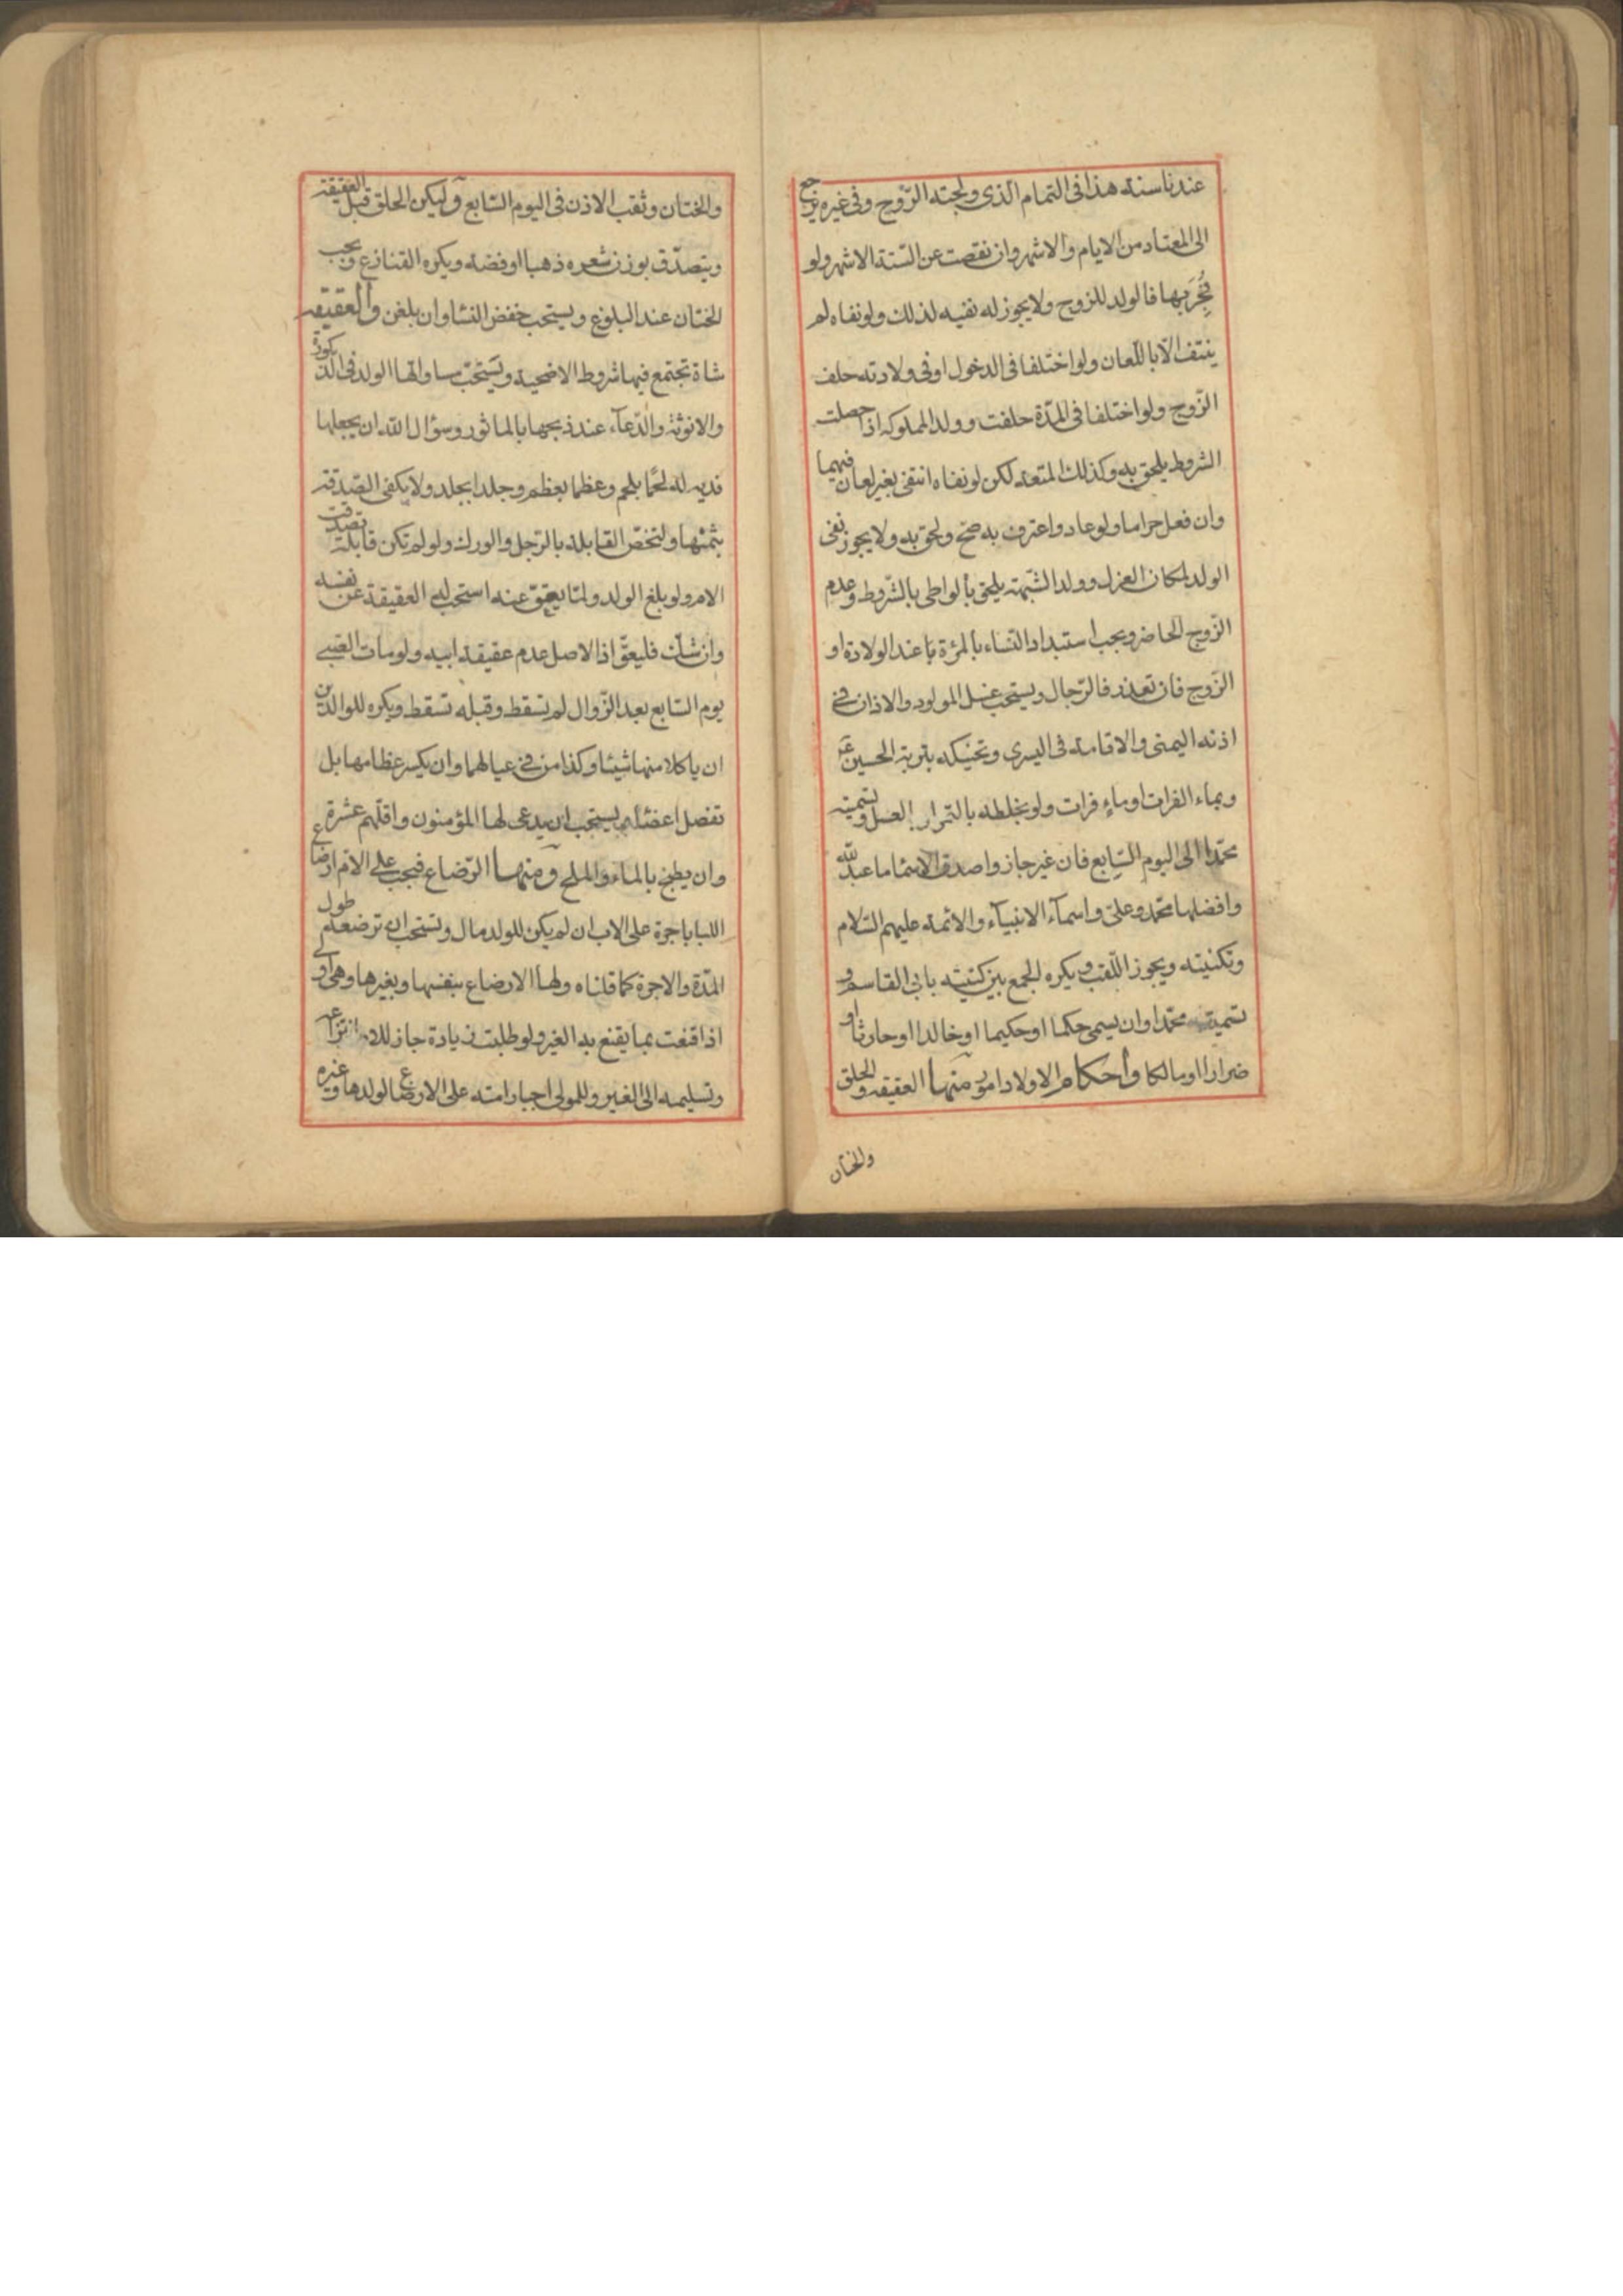 عندنا سنة هذا فى التمام الّذى ولجته الرّوح وفى غيره يرجع
الى المعتاد من الايام والاشهر وان نقصت عن الستة الاشهر ولو
فُجِرَ بها فالولد للزوج ولا يجوز له نفيه لذلك ولو نفاه لم
ينتف الّا باللّعان ولو اختلفا فى الدخول او فى ولادته حلف
الزّوج ولو اختلفا فى المدّة حلفت وولد المملوكه اذا حصلت
الشروط يلحق به وكذلك المتعه لكن لو نفاه انتفى بغير لعان فيهما
وان فعل حراما ولو عاد واعترف به صحّ ولحق به ولا يجوز نفى
الولد لمكان العزل وولد الشّبهة يلحق بالواطى بالشّروط وعدم
الزّوج الحاضر ويجب استبداد النساء بالمرٔة عند الولادة او
الزّوج فان تعذر فالرّجال ويستحب غسل المولود والاذان فى
اذنه اليمنى والاقامة فى اليسرى وتحنيكه بتربة الحسين ع
وبماء الفرات او ماءٍ فرات ولو بخلطه بالتمر او العسل وتسميته
محمّدا الى اليوم السّابع فان غير جاز واصدق الاسماء ما عبد للّه
وافضلها محمّد وعلىّ واسمآء الانبيآء والائمة عليهم السّلام
وتكنيته ويجوز اللّقب ويكره الجمع بين كنيته بابى القاسم و
تسميته محمّدا وان يسمى حكما او حكيما او خالدا او حارثا او
ضرارا او مالكا وأحكام الاولاد امور منها العقيقه والحلق
والختان
والختان وثقب الاذن فى اليوم السّابع وليكن الحلق قبل العقيقة
ويتصدّق بوزن شعره ذهبا او فضه ويكره القنازع ويجب
الختان عند البلوغ ويستحب خفض النساء وان بلغن والعقيقه
شاة تجتمع فيها شروط الاضحية ويستحبّ مساواتها الولد فى الذكورة
والانوثة والدّعآء عند ذبحها بالماثور وسؤال اللّه ان يجعلها
فدية له لحمًا بلحم وعظما بعظم وجلدا بجلد ولا يكفى الصّدقة
بثمنها ولتخصّ القابلة بالرّجل والورك ولو لم تكن قابلة تصدقت
الام ولو بلغ الولد ولمّا يعق عنه استحب له العقيقة عن نفسه
وان شك فليعقّ اذ الاصل عدم عقيقة ابيه ولو مات الصبى
يوم السّابع بعد الزّوال لم تسقط وقبله تسقط ويكره للوالدين
ان ياكلا منها شيئا وكذا من فى عيالهما وان يكسر عظامها بل
تفصل اعضائها ويستحب ان يدعى لها المؤمنون واقلّهم عشرة
وان يطبخ بالماء والملح ومنها الرّضاع فيجب على الام ارضاع
اللبا باجرة على الاب ان لم يكن للولد مال ويستحب ان ترضعه طول
المدّة والاجرة كما قلناه ولها الارضاع بنفسها وبغيرها وهى اولى
اذا قنعت بما يقنع به الغير ولو طلبت زيادة جاز للاب انتزاعه
وتسليمه الى الغير وللمولى اجبار امته على الارضاع لولدها وغيره